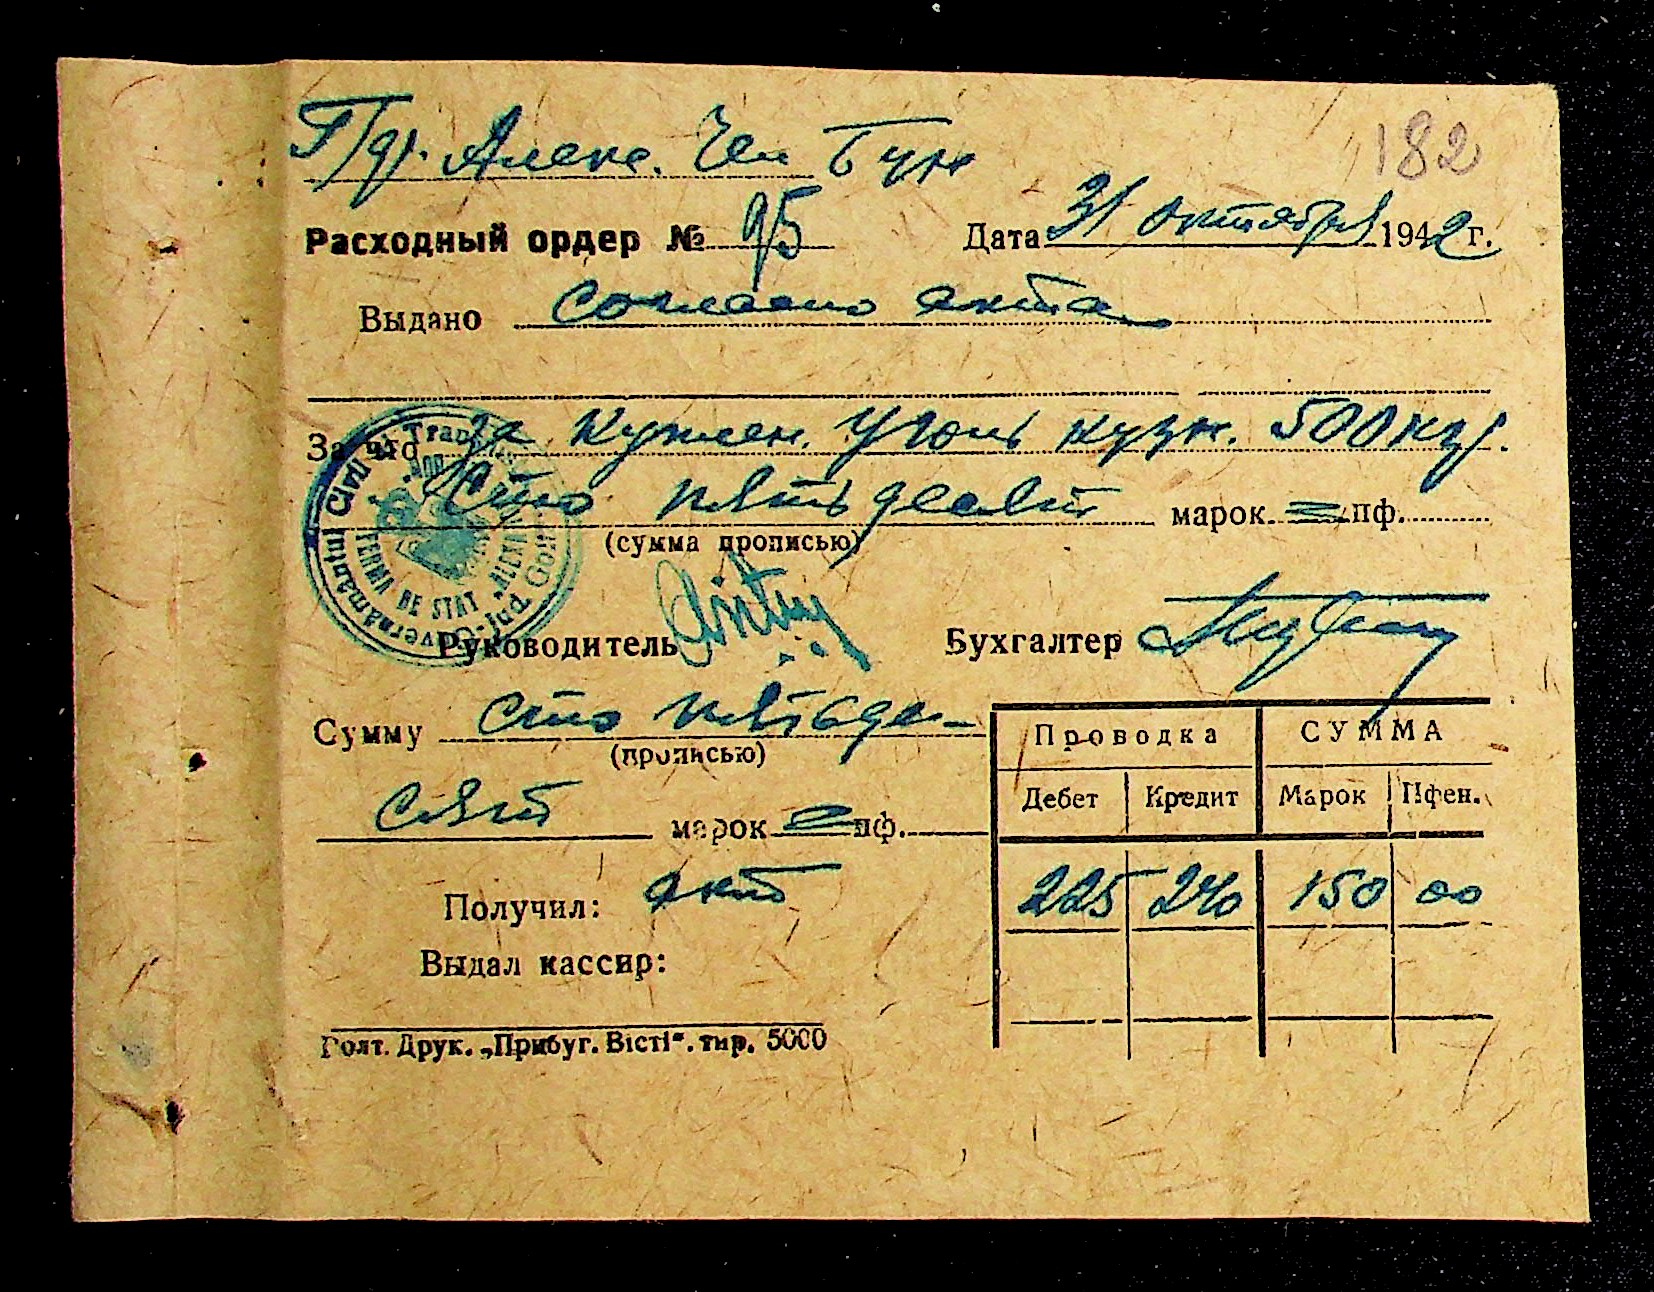 182
Г/дг. Алекс.
Расходный ордер № 95 Дата 31 октября 1942 г.
Выдано согласно акта
За что за куплен. уголь кузн. 500 кгр.
Сто пятьдесят марок = пф.
(сумма прописью)
Guvernământul Civil al Trans
FERMA DE STAT „ALEXA
Руководитель Бухгалтер
Сумму сто пятьде-
(прописью)
сят марок = пф.
Проводка СУММА
Дебет Кредит Марок Пфен.
225 240 150 00
Получил: акт
Выдал кассир:
Голт. Друк. „Прибуг. Вісті“. тир. 5000